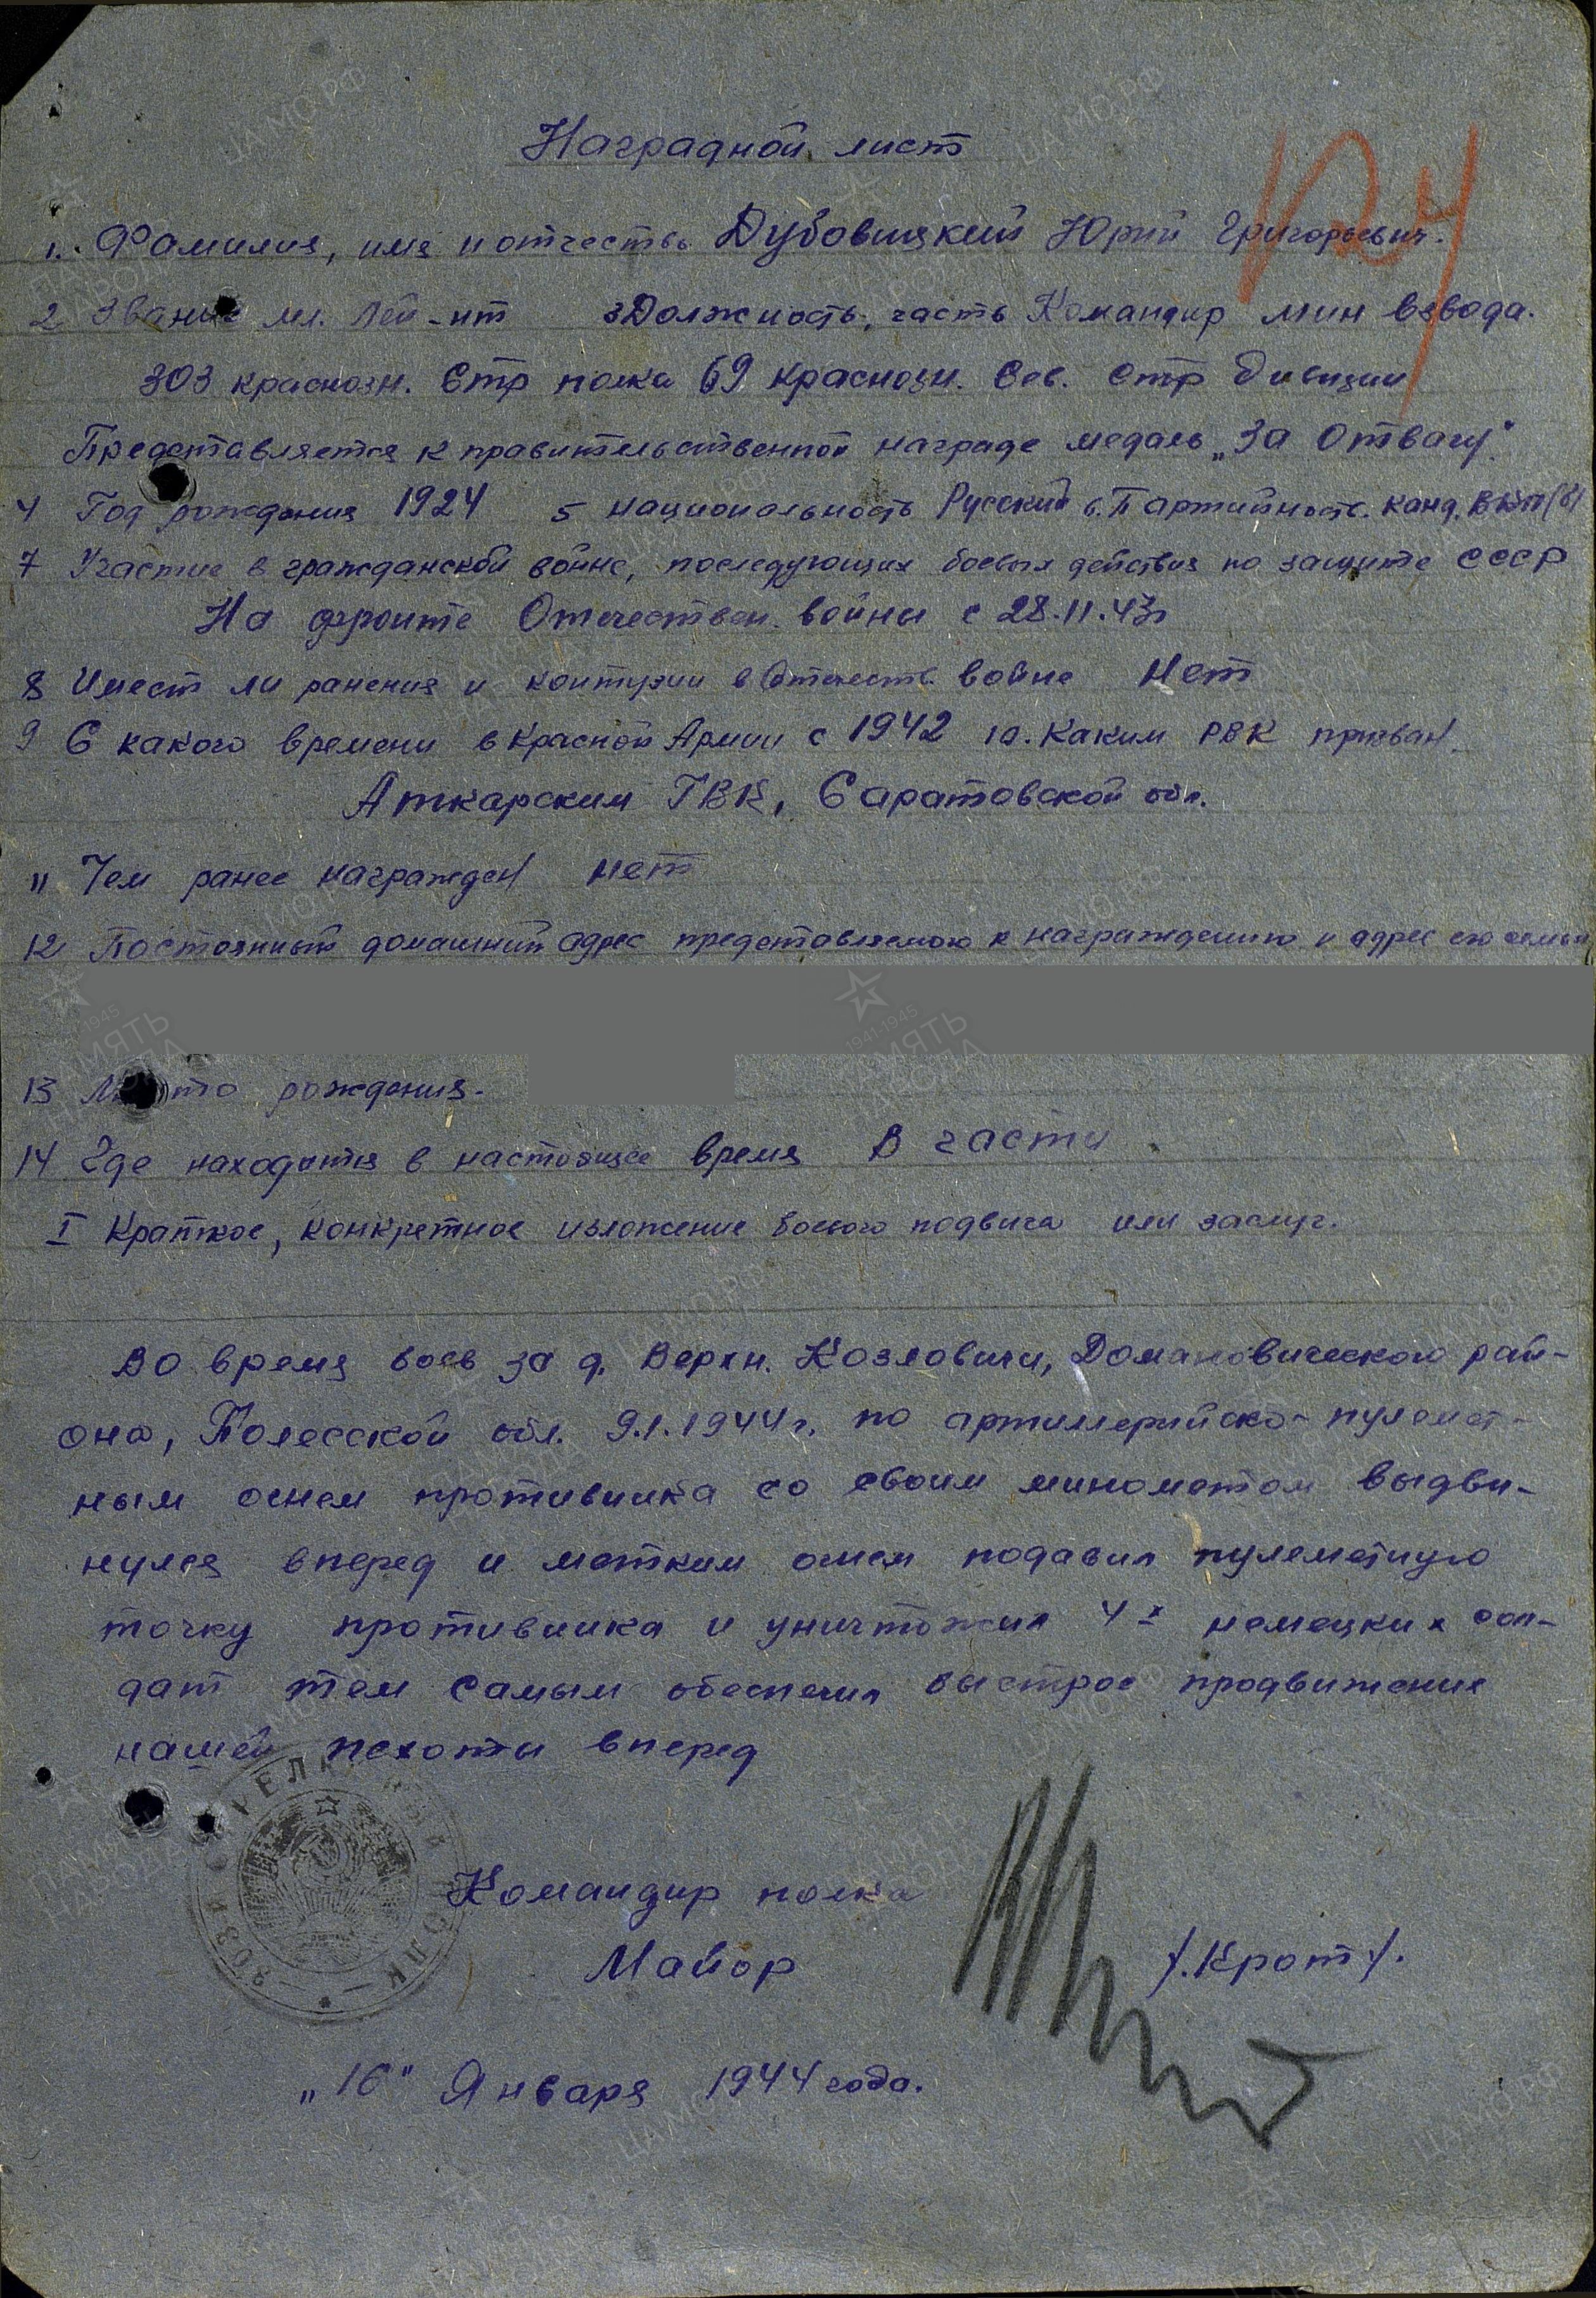 Наградной лист
1. Фамилия, имя и отчество Дубовицкий Юрий Григорьевич.
2 Звание мл. Лей-нт 3 Должность, часть Командир мин взвода.
303 краснозн. Стр полка 69 краснозн. Сев. Стр дивизии
Представляется к правительственной награде медаль „За Отвагу".
4 Год рождения 1924 5 национальность Русский 6. Партийность. канд. ВКП(б)
7 Участие в гражданской войне, последующих боевых действия по защите СССР
На фронте Отечествен. войны с 28.11.43г
8 Имеет ли ранения и контузии в Отечеств. войне Нет
9 С какого времени в Красной Армии с 1942 10. Каким РВК призван
Аткарским ГВК, Саратовской обл.
11 Чем ранее награжден нет
12 Постоянный домашний адрес представляемого к награждению и адрес его семьи
13 Место рождения-
14 Где находится в настоящее время В части
I Краткое, конкретное изложение боевого подвига или заслуг.
Во время боев за д. Верхн. Козловичи, Домановического рай-
она, Полесской обл. 9.1.1944г. по артиллерийско-пулемет-
ным огнем противника со своим минометом выдви-
нулся вперед и метким огнем подавил пулеметную
точку противника и уничтожил 4х немецких сол-
дат тем самым обеспечил быстрое продвижение
нашей пехоты вперед
303Й СТРЕЛКОВЫЙ ПОЛК
Командир полка
Майор /.Крот/.
„16" Января 1944 года.